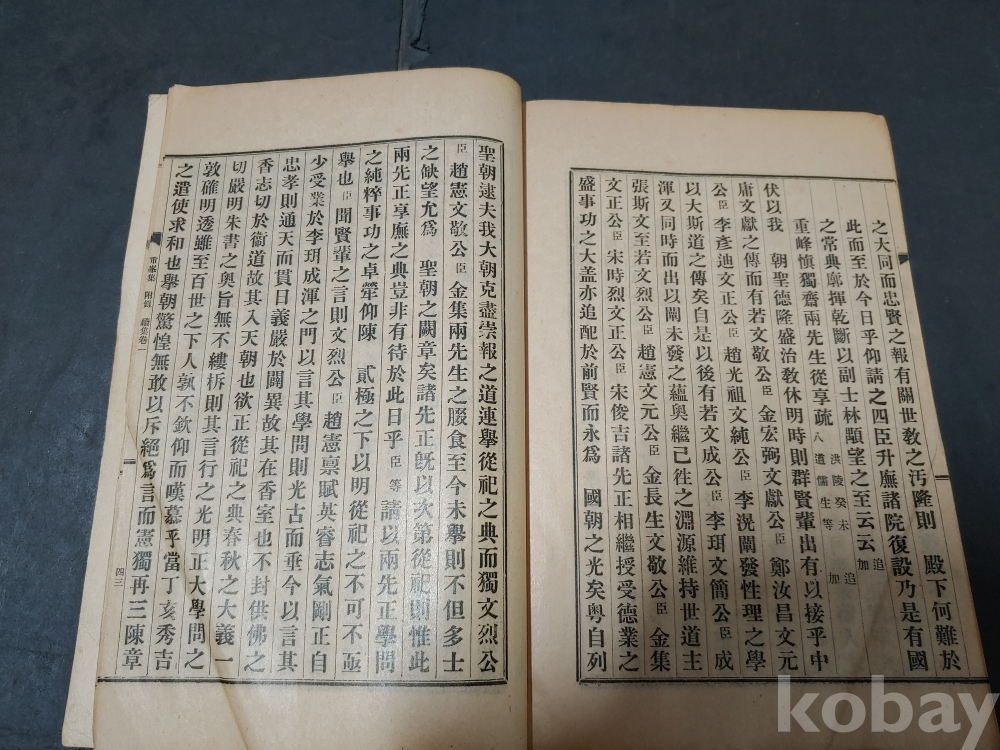 之大同而忠賢之報有關世敎之汚隆則 殿下何難於
此而至於今日乎仰請之四臣升廡諸院復設乃是有國
之常典廓揮乾斷以副士林顒望之至云云 追加
重峰愼獨齋兩先生從享疏 洪陵癸未 追加 八道儒生等
伏以我 朝聖德隆盛治敎休明時則群賢輩出有以接乎中
庸文獻之傳而有若文敬公臣金宏弼文獻公臣鄭汝昌文元
公臣李彦迪文正公臣趙光祖文純公臣李滉闡發性理之學
以大斯道之傳矣自是以後有若文成公臣李珥文簡公臣成
渾又同時而出以闡未發之蘊奧繼已徃之淵源維持世道主
張斯文至若文烈公臣趙憲文元公臣金長生文敬公臣金集
文正公臣宋時烈文正公臣宋俊吉諸先正相繼授受德業之
盛事功之大盖亦追配於前賢而永爲 國朝之光矣粤自列
聖朝逮夫我大朝克盡崇報之道連擧從祀之典而獨文烈公
臣趙憲文敬公臣金集兩先生之腏食至今未擧則不但多士
之缺望尤爲 聖朝之闕章矣諸先正旣以次第從祀則惟此
兩先正享廡之典豈非有待於此日乎臣等請以兩先正學問
之純粹事功之卓犖仰陳 貳極之下以明從祀之不可不亟
擧也臣聞賢輩之言則文烈公臣趙憲禀賦英睿志氣剛正自
少受業於李珥成渾之門以言其學問則光古而垂今以言其
忠孝則通天而貫日義嚴於闢異故其在香室也不封供佛之
香志切於衞道故其入天朝也欲正從祀之典春秋之大義一
切嚴明朱書之奧旨無不縷析則其言行之光明正大學問之
敦確明透雖至百世之下人孰不欽仰而嘆慕乎當丁亥秀吉
之遣使求和也擧朝驚惶無敢以斥絕爲言而憲獨再三陳章
重峯集 附錄 續集卷
四三
kobay